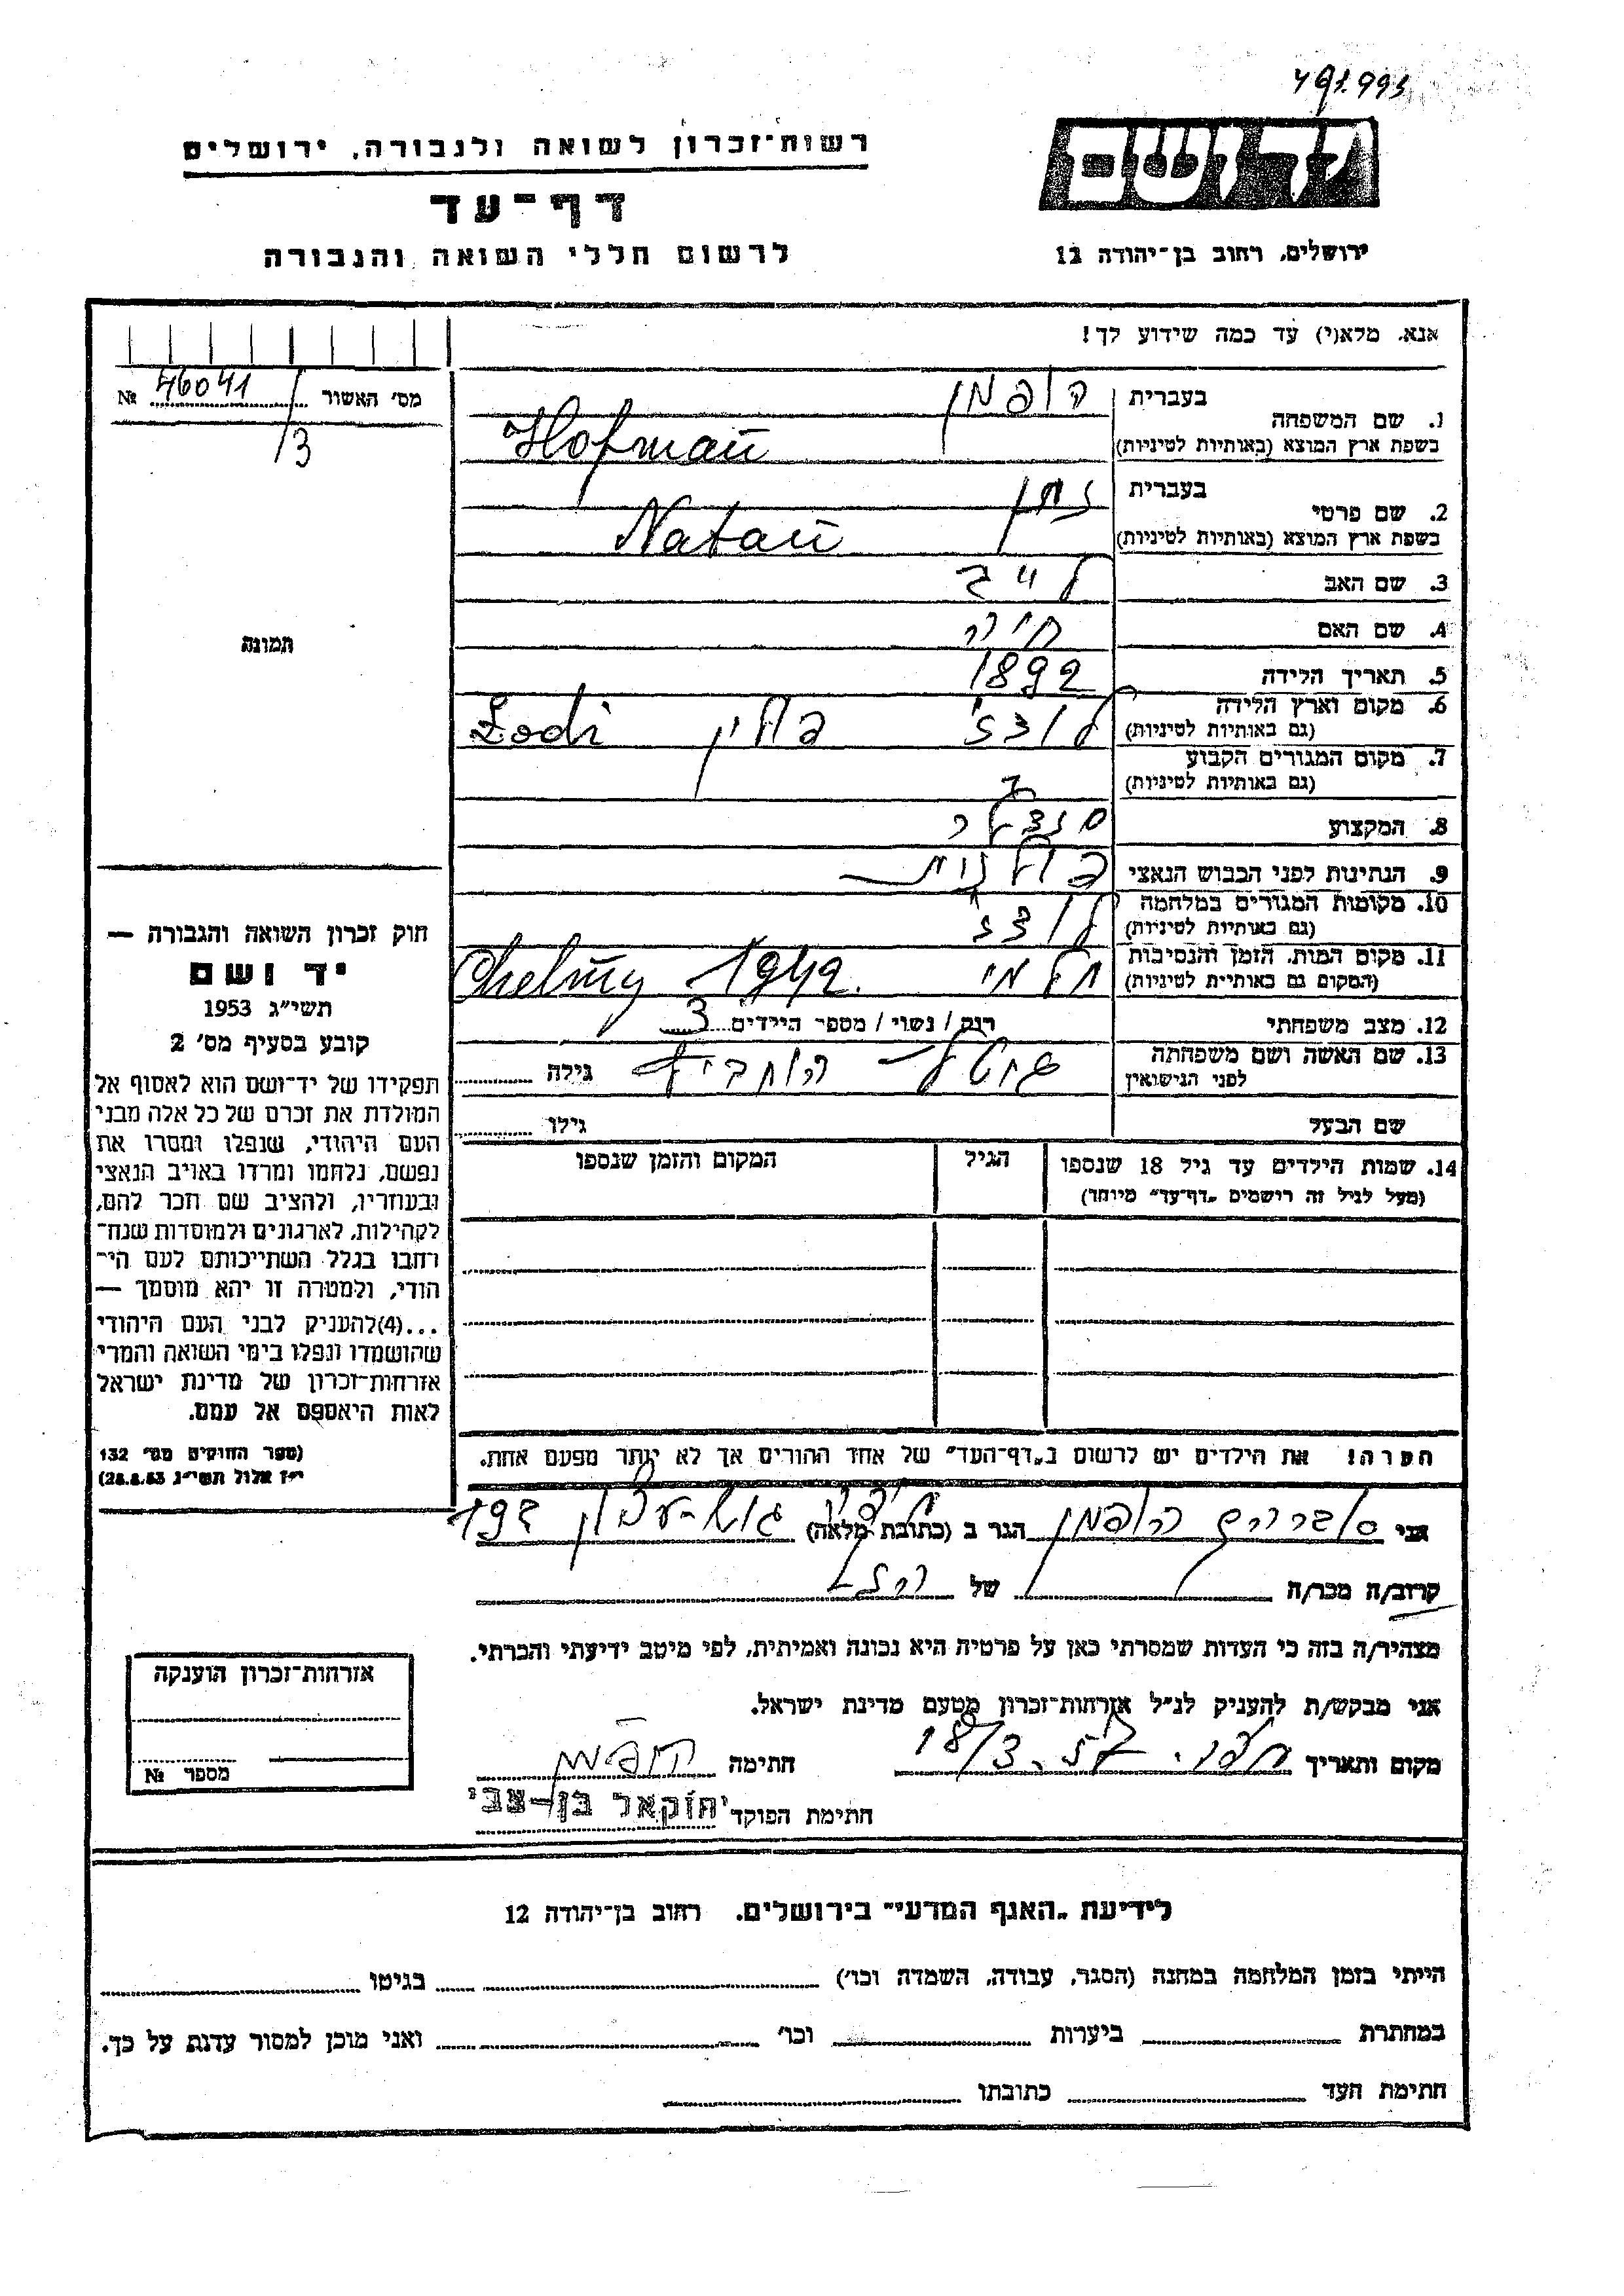 491.993
רשות־זכרון לשואה ולגבורה, ירושלים
יד ושם
דף־עד
לרשום חללי השואה והגבורה
ירושלים, רחוב בן־יהודה 12
אנא, מלא(י) עד כמה שידוע לך!
מס׳ האשור 46041 №
/3
תמונה
בעברית הופמן
1. שם המשפחה
בשפת ארץ המוצא (באותיות לטיניות) Hofman
בעברית נתן
2. שם פרטי
בשפת ארץ המוצא (באותיות לטיניות) Natan
3. שם האב לייב
4. שם האם חיה
5. תאריך הלידה 1892
6. מקום וארץ הלידה לודז׳ פולין Lodi
(גם באותיות לטיניות)
7. מקום המגורים הקבוע
(גם באותיות לטיניות)
8. המקצוע סנדלר
9. הנתינות לפני הכבוש הנאצי פולנית
10. מקומות המגורים במלחמה לודז
(גם באותיות לטיניות)
11. מקום המות, הזמן והנסיבות חלמי 1942. Chelmy
(המקום גם באותיית לטיניות)
12. מצב משפחתי רוק / נשוי / מספר הילדים 3
13. שם האשה ושם משפחתה
לפני הנישואין
גילה
שם הבעל גילו
14. שמות הילדים עד גיל 18 שנספו הגיל המקום והזמן שנספו
(מעל לגיל זה רישמים „דף־עד״ מיוחד)
הערה! את הילדים יש לרשום ב„דף־העד״ של אחד ההורים אך לא יותר מפעם אחת.
חוק זכרון השואה והגבורה —
יד ושם
תשי״ג 1953
קובע בסעיף מס׳ 2
תפקידו של יד־ושם הוא לאסוף אל
המולדת את זכרם של כל אלה מבני
העם היהודי, שנפלו ומסרו את
נפשם, נלחמו ומרדו באויב הנאצי
ובעוזריו, ולהציב שם וזכר להם,
לקהילות, לארגונים ולמוסדות שנח־
רחבו בגלל השתייכותם לעם הי־
הודי, ולמטרה זו יהא מוסמך —
...(4)להעניק לבני העם היהודי
שהושמדו ונפלו בימי השואה והמרי
אזרחות־זכרון של מדינת ישראל
לאות היאספם אל עמם.
(ספר החוקים מס׳ 132
י״ז אלול תשי״ג 28.8.53)
אני אברהם הופמן הגר ב (כתובת מלאה) חיפה 193
קרוב/ה מכר/ה של הנ״ל
מצהיר/ה בזה כי העדות שמסרתי כאן על פרטיה היא נכונה ואמיתית, לפי מיטב ידיעתי והכרתי.
אני מבקש/ת להעניק לנ״ל אזרחות־זכרון מטעם מדינת ישראל.
מקום ותאריך חיפה. 18/3 חתימה הופמן
חתימת הפוקד יחזקאל בן־צבי
אזרחות־זכרון הוענקה
מספר №
לידיעת „האגף המדעי״ בירושלים, רחוב בן־יהודה 12
הייתי בזמן המלחמה במחנה (הסגר, עבודה, השמדה וכו׳) בגיטו
במחתרת ביערות וכו׳ ואני מוכן למסור עדות על כך.
חתימת העד כתובתו